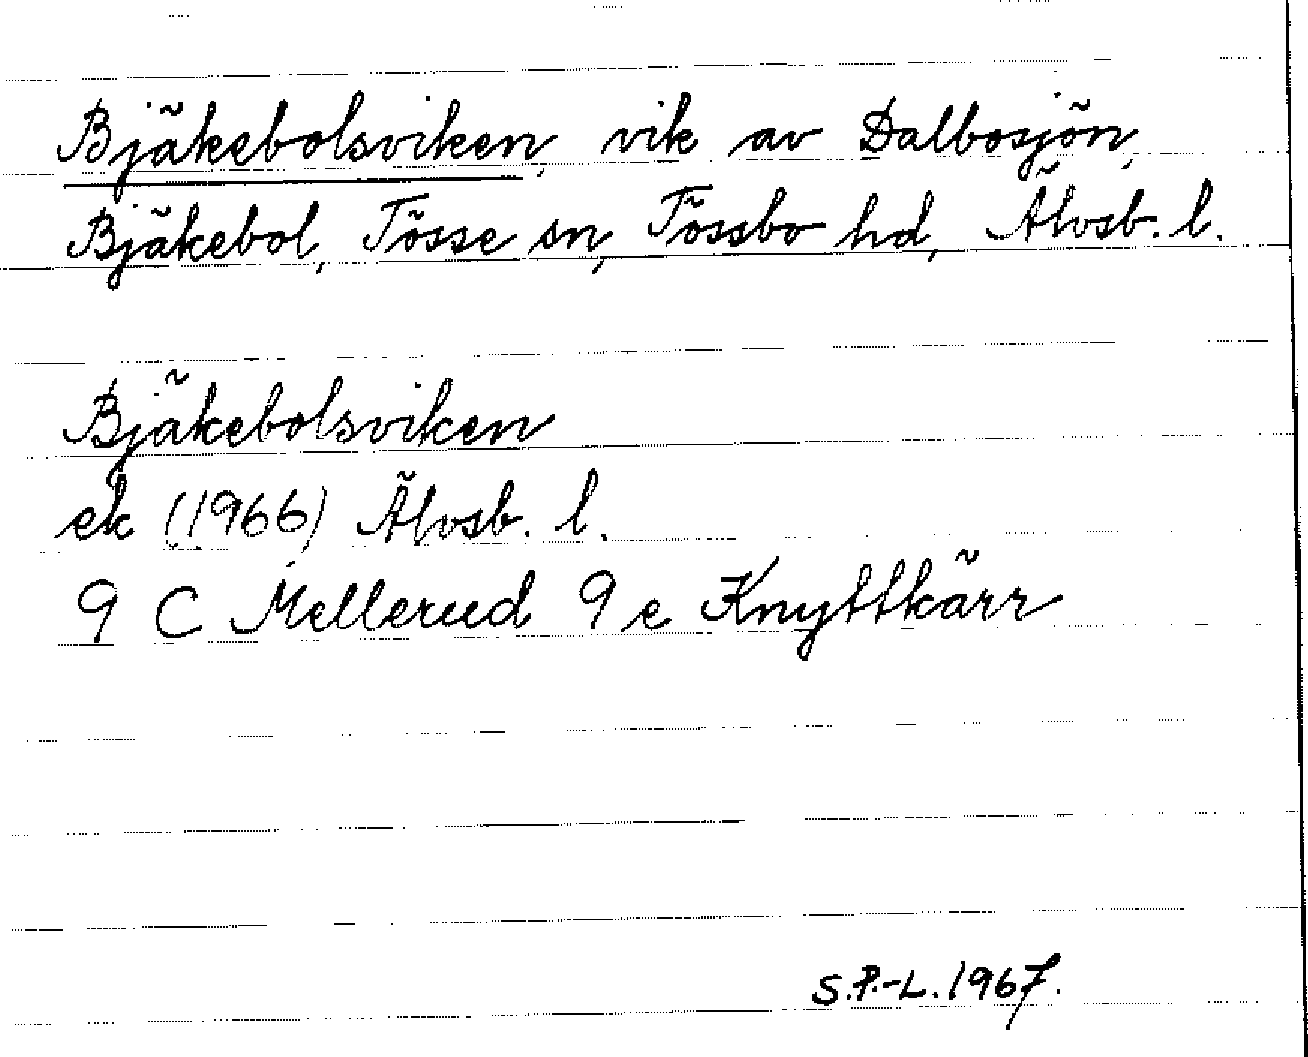 Bjäkebolsviken, vik av Dalbosjön,
Bjäkebol, Tösse sn, Tössbo hd, Älvsb. l.
Bjäkebolsviken
ek (1966) Älvsb. l.
9 C Mellerud 9 e Knyttkärr
S.P.-L. 1967.